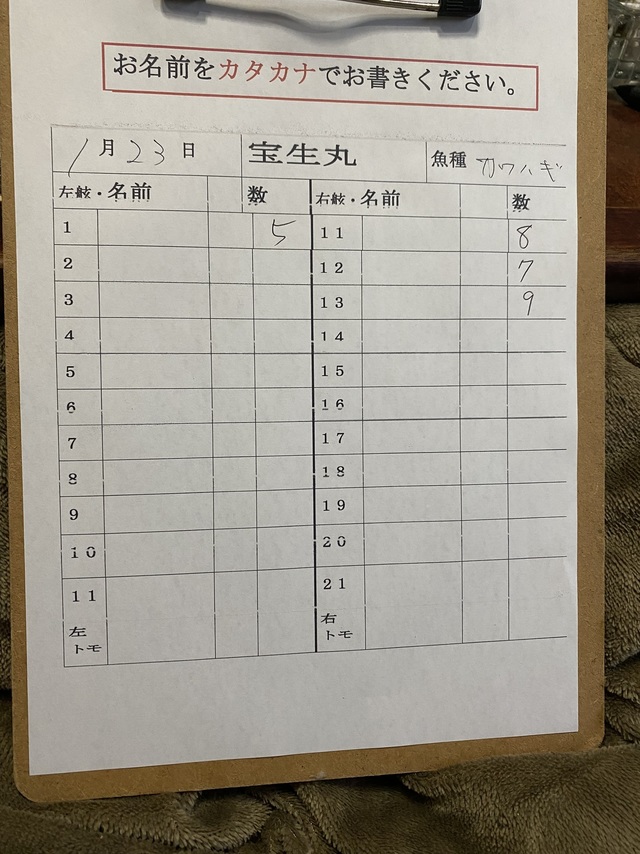 お名前をカタカナでお書きください。
1月23日 宝生丸 魚種 カワハギ
左舷・名前 数 右舷・名前 数
1 5 11 8
2 12 7
3 13 9
4 14
5 15
6 16
7 17
8 18
9 19
10 20
11 21
左 右
トモ トモ